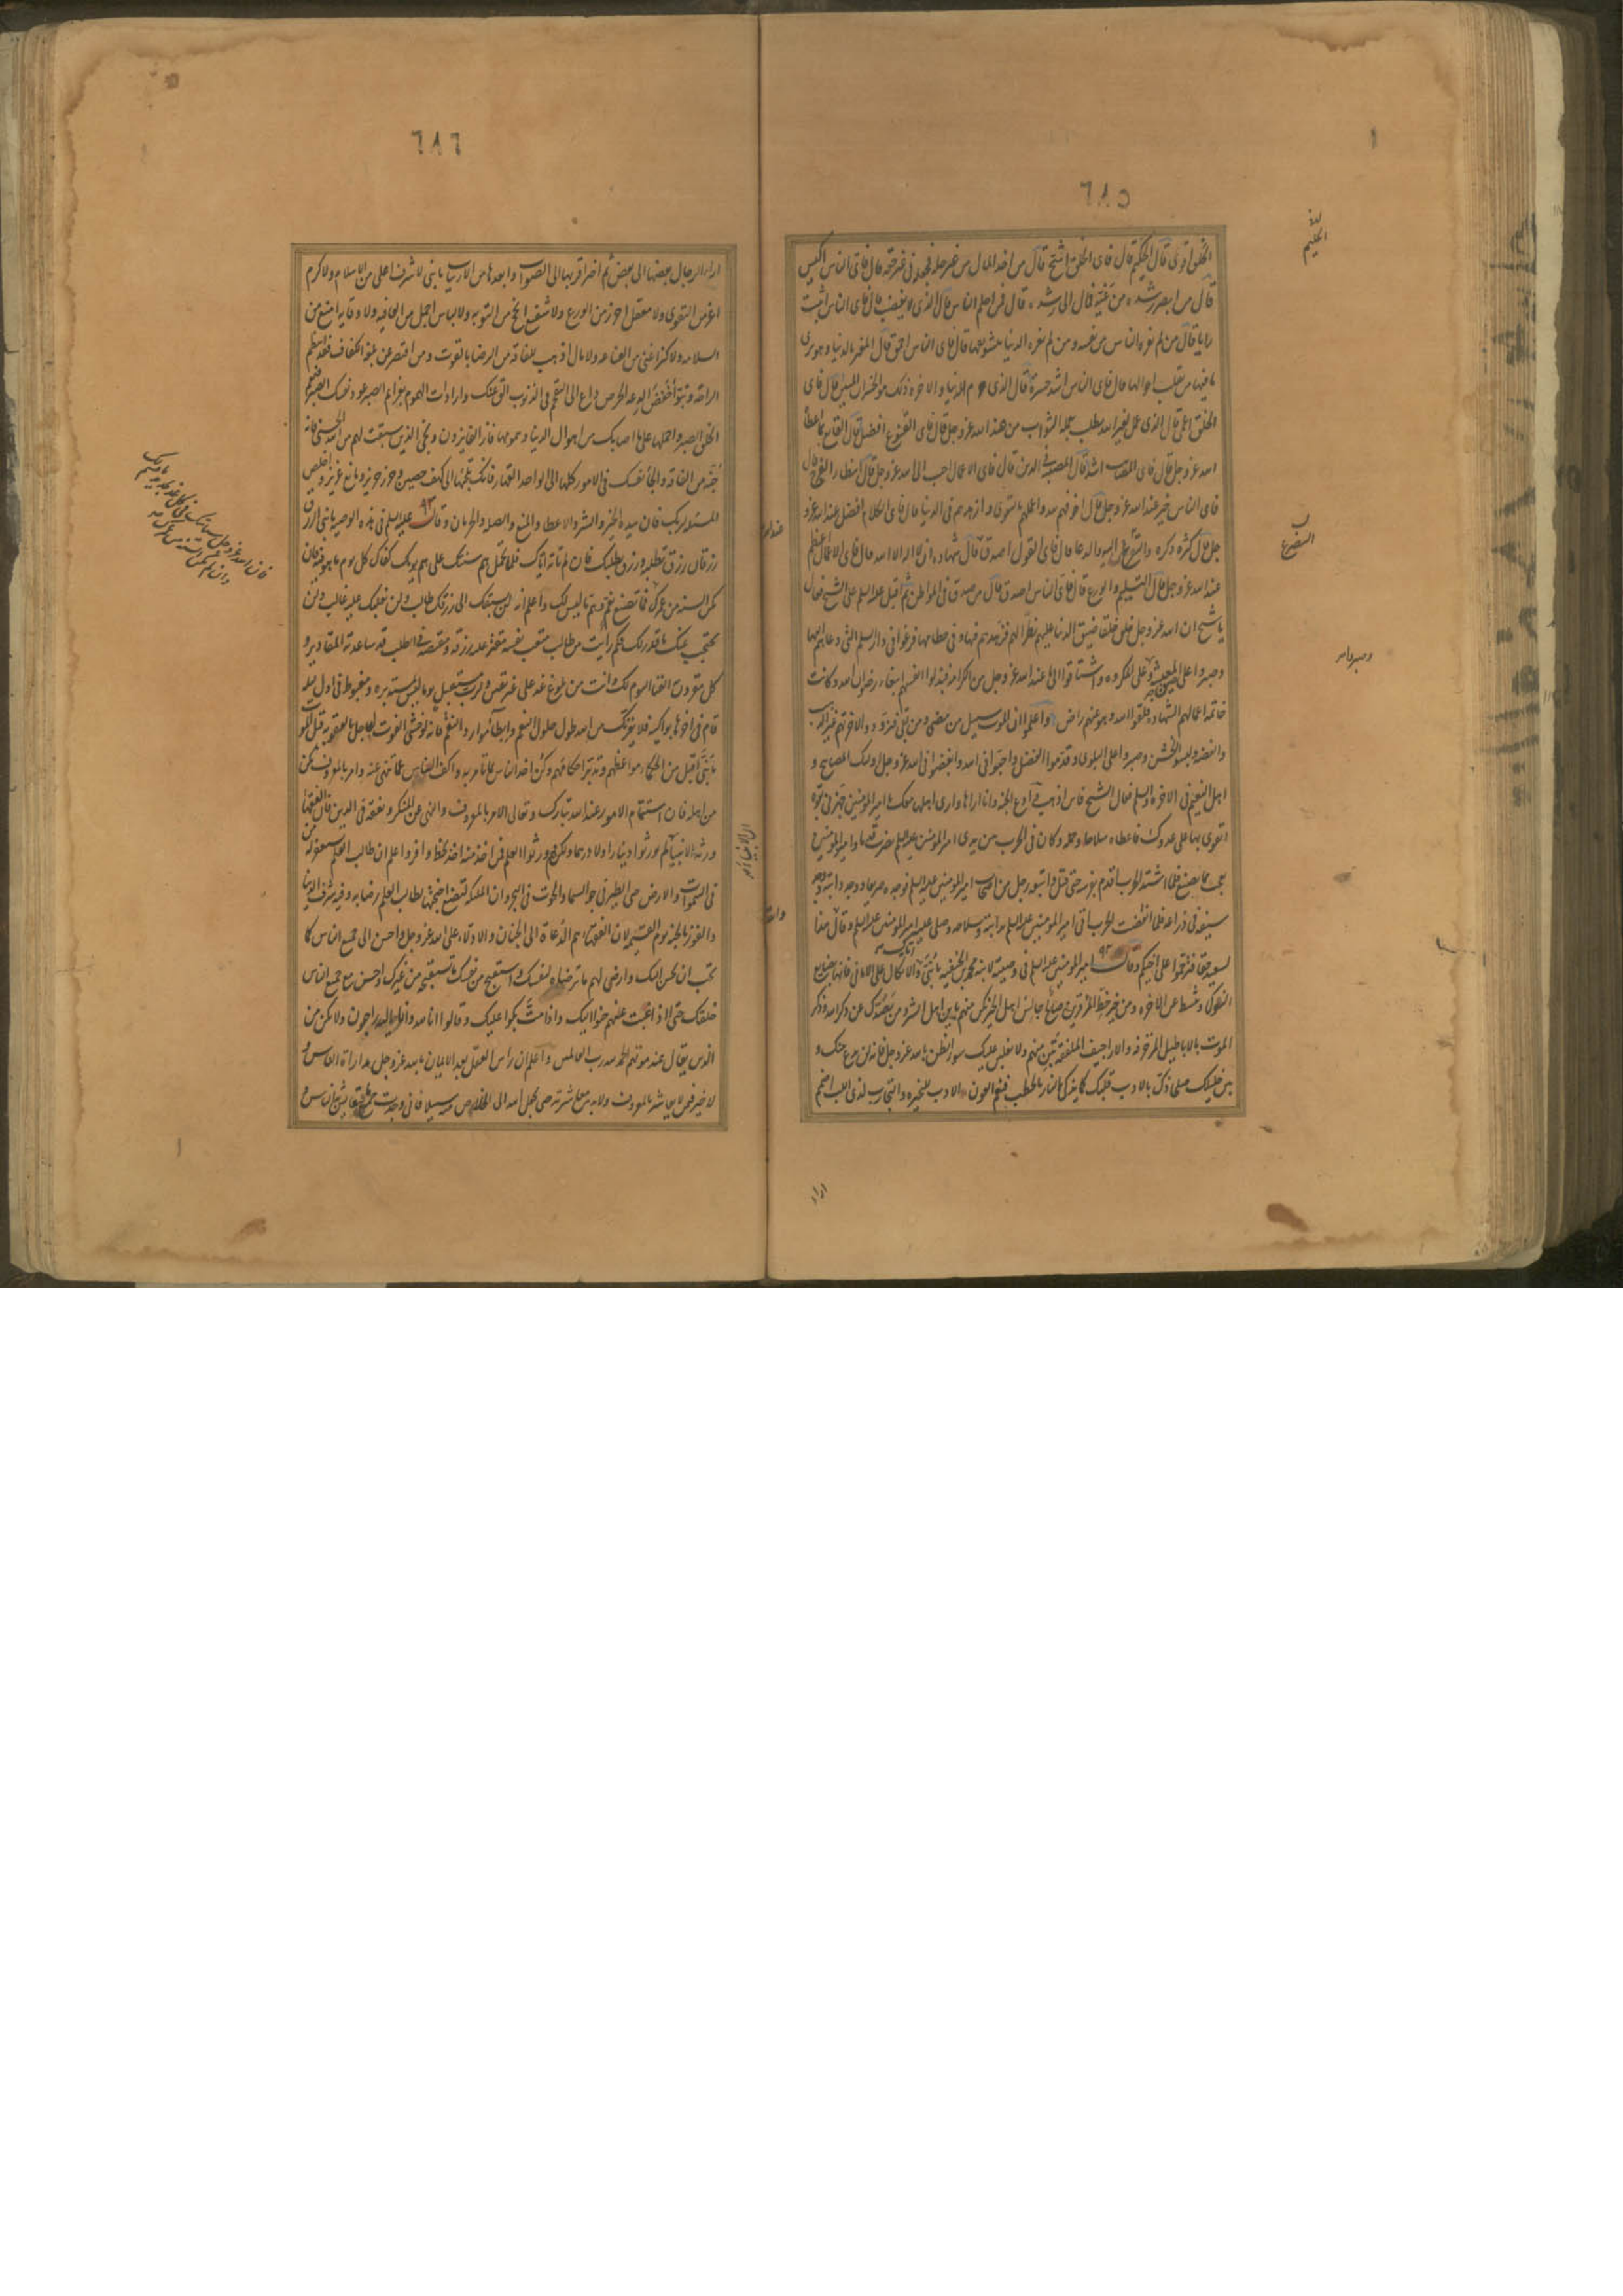 ٦٨٥
الخلق اقوى قال الحليم قال فاى الخلق اشح قال من اخذ المال من غير حله فجعله فى غير حقه قال فاى الناس اكيس
قال من ابصر رشده من غيه فمال الى رشده قال فمن احلم الناس قال الذى لا يغضب قال فاى الناس اثبت
رايا قال من لم يغره الناس من نفسه ومن لم تغره الدنيا بتشوفها قال فاى الناس احمق قال المغتر بالدنيا وهو يرى
ما فيها من تقلب احوالها قال فاى الناس اشد حسرة قال الذى حرم الدنيا والاخره ذلك هو الخسران المبين قال فاى
الخلق اعمى قال الذى عمل لغير الله يطلب بعمله الثواب من عند الله عز وجل قال فاى القنوع افضل قال القانع بما اعطاه
الله عز وجل قال فاى المصايب اشد قال المصيبة فى الدين قال فاى الاعمال احب الى الله عز وجل قال انتظار الفرج قال
فاى الناس خير عند الله عز وجل قال اخوفهم لله واعملهم بالتقوى وازهدهم فى الدنيا قال فاى الكلام افضل عند الله عز و
جل قال كثرة ذكره والتضرع اليه والدعا قال فاى القول اصدق قال شهادة ان لا اله الا الله قال فاى الاعمال اعظم
عند الله عز وجل قال التسليم والورع قال فاى الناس اصدق قال من صدق فى المواطن ثم اقبل عليه السلم على الشيخ فقال
يا شيخ ان الله عز وجل خلق خلقا ضيق الدنيا عليهم نظرا لهم فزهدهم فيها وفى حطامها فرغبوا فى دار السلم التى دعاهم اليها
وصبروا على ضيق المعيشة وعلى المكروه واشتاقوا الى ما عند الله عز وجل من الكرامة فبذلوا انفسهم ابتغاء رضوان الله وكانت
خاتمة اعمالهم الشهاده فلقوا الله وهو عنهم راض واعلموا ان الموت سبيل من مضى ومن بقى فتزودوا لاخرتهم غير الذهب
والفضه ولبسوا الخشن وصبروا على البلوى وقدموا الفضل واحبوا فى الله وابغضوا فى الله عز وجل اولئك المصابيح و
اهل النعيم فى الاخره والسلم فقال الشيخ فاين اذهب وادع الجنه وانا اراها وارى اهلها معك يا امير المؤمنين جهزنى بقوة
اتقوى بها على عدوك فاعطاه سلاحا وحمله وكان فى الحرب بين يدى امير المؤمنين عليه السلم يضرب قدما وامير المؤمنين
يعجب مما يصنع فلما اشتد الحرب اقدم فرسه حتى قتل واتبعه رجل من اصحاب امير المؤمنين عليه السلم فوجده صريعا ووجد دابته ووجد
سيفه فى ذراعه فلما انقضت الحرب اتى امير المؤمنين عليه السلم بدابته وسلاحه وصلى عليه امير المؤمنين عليه السلم وقال هذا
السعيد حقا فترحموا على اخيكم وقال امير المؤمنين عليه السلم فى وصيته لابنه محمد بن الحنفيه يا بنى اياك والاتكال على الامانى فانها بضايع
النوكى وتثبط عن الاخره ومن خير حظ المرء قرين صالح جالس اهل الخير تكن منهم باين اهل الشر ومن يصدك عن ذكر الله وذكر
الموت بالاباطيل المزخرفه والاراجيف الملفقة تبن منهم ولا يغلبن عليك سوء الظن بالله عز وجل فانه لن يدع بينك و
بين خليلك صلحا ذك بالادب قلبك كما يذكى النار بالحطب فنعم العون الادب للنحيزه والتجارب لذى اللب اضمم
اراء
٦٨٦
اراء الرجال بعضها الى بعض ثم اختر اقربها الى الصواب وابعدها من الارتياب يا بنى لا شرف اعلى من الاسلام ولا كرم
اعز من التقوى ولا معقل احرز من الورع ولا شفيع انجح من التوبه ولا لباس اجمل من العافيه ولا وقايه امنع من
السلامه ولا كنز اغنى من القناعه ولا مال اذهب للفاقه من الرضا بالقوت ومن اقتصر على بلغة الكفاف فقد انتظم
الراحة وتبوأ خفض الدعه الحرص داع الى التقحم فى الذنوب الق عنك واردات الهموم بعزايم الصبر عود نفسك الصبر فنعم
الخلق الصبر واحملها على ما اصابك من اهوال الدنيا وهمومها فاز الفايزون ونجى الذين سبقت لهم من الله الحسنى فانه
جنة من الفاقه والجأ نفسك فى الامور كلها الى الله الواحد القهار فانك تلجئها الى كهف حصين وحرز حريز ومانع عزيز واخلص
المسئله لربك فان بيده الخير والشر والاعطا والمنع والصله والحرمان وقال عليه السلم فى هذه الوصيه يا بنى الرزق
رزقان رزق تطلبه ورزق يطلبك فان لم تاته اتاك فلا تحمل هم سنتك على هم يومك كفاك كل يوم ما هو فيه فان
تكن السنه من عمرك فما تصنع بغم وهم ما ليس لك واعلم انه لن يسبقك الى رزقك طالب ولن يغلبك عليه غالب ولن
يحتجب عنك ما قدر لك فكم رايت من طالب متعب نفسه مقتر عليه رزقه ومقتصد فى الطلب قد ساعدته المقادير و
كل مقرون به الفنا اليوم لك وانت من بلوغ غد على غير يقين ولرب مستقبل يوما ليس بمستدبره ومغبوط فى اول ليله
قام فى اخرها بواكيه فلا يغرنك من الله طول حلول النعم وابطاء موارد النقم فانه لو خشى الفوت لعاجل بالعقوبه قبل الموت
يا بنى اقبل من الحكماء مواعظهم وتدبر احكامهم وكن اخذ الناس بما تامر به واكف الناس عما تنهى عنه وامر بالمعروف تكن
من اهله فان استتمام الامور عند الله تبارك وتعالى الامر بالمعروف والنهى عن المنكر وتفقه فى الدين فان الفقها
ورثه الانبيا لم يورثوا دينارا ولا درهما ولكنهم ورثوا العلم فمن اخذ منه اخذ بحظ وافر واعلم ان طالب العلم يستغفر له من
فى السموات والارض حتى الطير فى جو السما والحوت فى البحر وان الملئكه لتضع اجنحتها لطالب العلم رضا به وفيه شرف الدنيا
والفوز بالجنه يوم القيمه لان الفقها هم الدعاة الى الجنان والادلاء على الله عز وجل واحسن الى جميع الناس كما
تحب ان يحسن اليك وارض لهم ما ترضاه لنفسك واستقبح من نفسك ما تستقبحه من غيرك وحسن مع جميع الناس
خلقك حتى اذا غبت عنهم حنوا اليك واذا مت بكوا عليك وقالوا انا لله وانا اليه راجعون ولا تكن من
الذين يقال عند موتهم الحمد لله رب العالمين واعلم ان راس العقل بعد الايمان بالله عز وجل مداراة الناس و
لا خير فيمن لا يعاشر بالمعروف من لا بد من معاشرته حتى يجعل الله الى الخلاص منه سبيلا فانى وجدت جميع ما يتعايش به الناس و